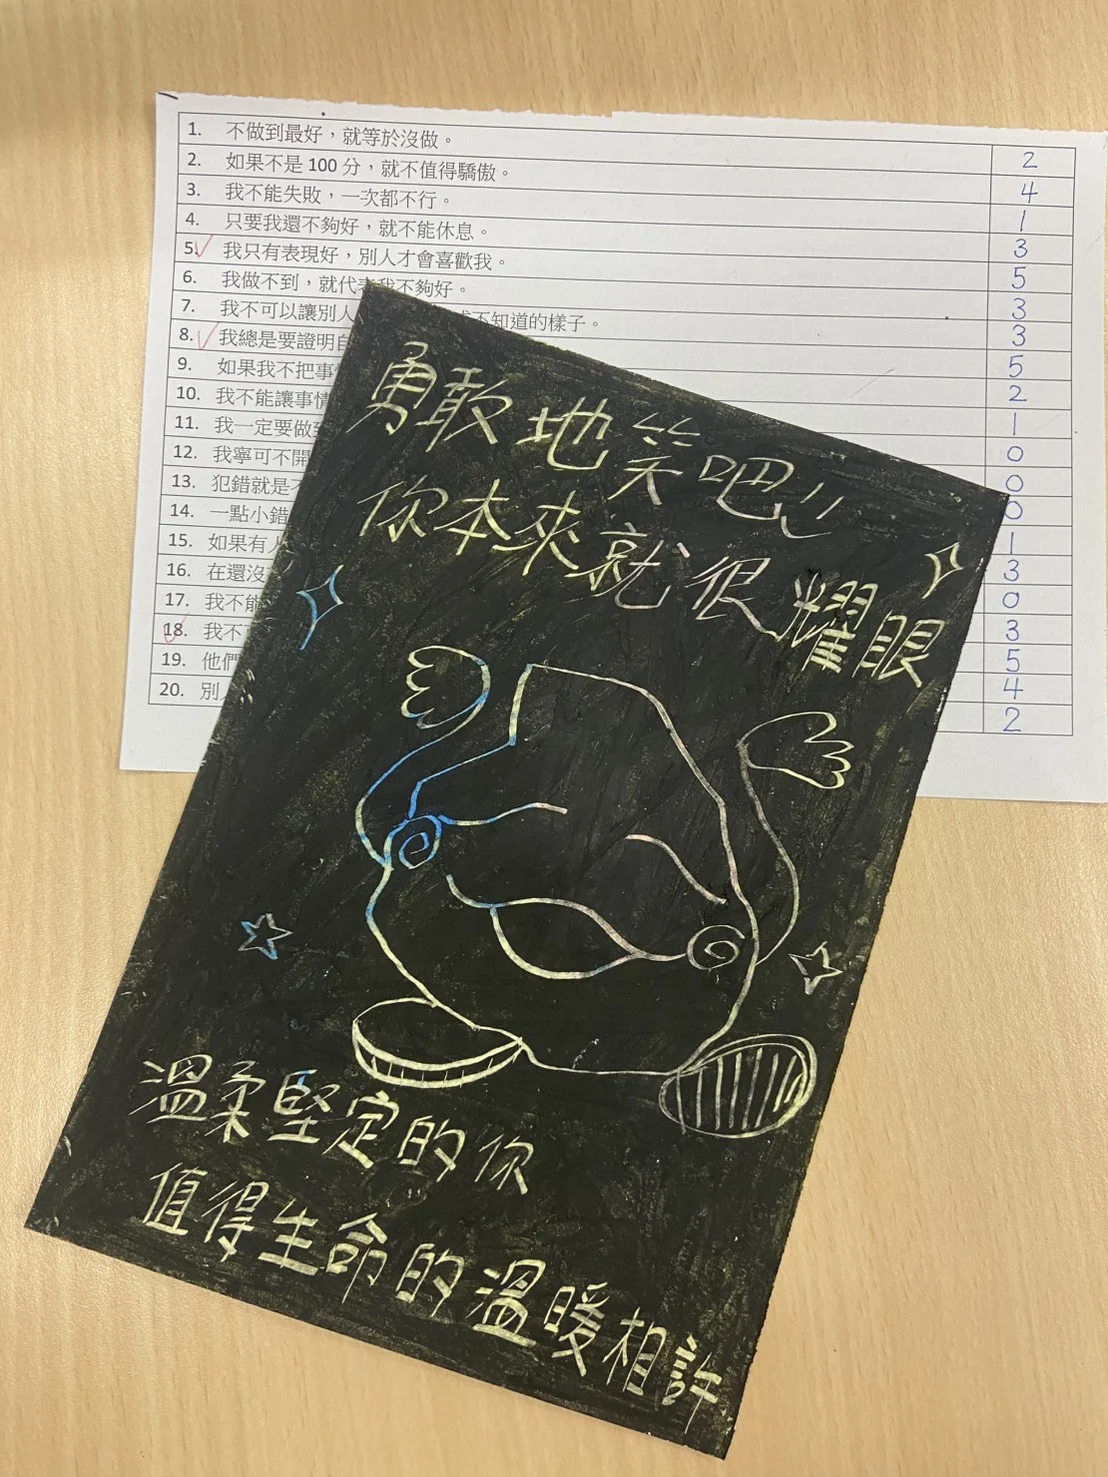 1. 不做到最好，就等於沒做。 2
2. 如果不是 100 分，就不值得驕傲。 4
3. 我不能失敗，一次都不行。 1
4. 只要我還不夠好，就不能休息。 3
5. 我只有表現好，別人才會喜歡我。 5
6. 我做不到，就代表我不夠好。 3
7. 我不可以讓別人 不知道的樣子。 3
8. 我總是要證明自 5
9. 如果我不把事 2
10. 我不能讓事情 1
11. 我一定要做 0
12. 我寧可不開 0
13. 犯錯就是 0
14. 一點小錯 1
15. 如果有 3
16. 在還沒 0
17. 我不能 3
18. 我不 5
19. 他們 4
20. 別 2
勇敢地笑吧
你本來就很耀眼
溫柔堅定的你
值得生命的溫暖相許